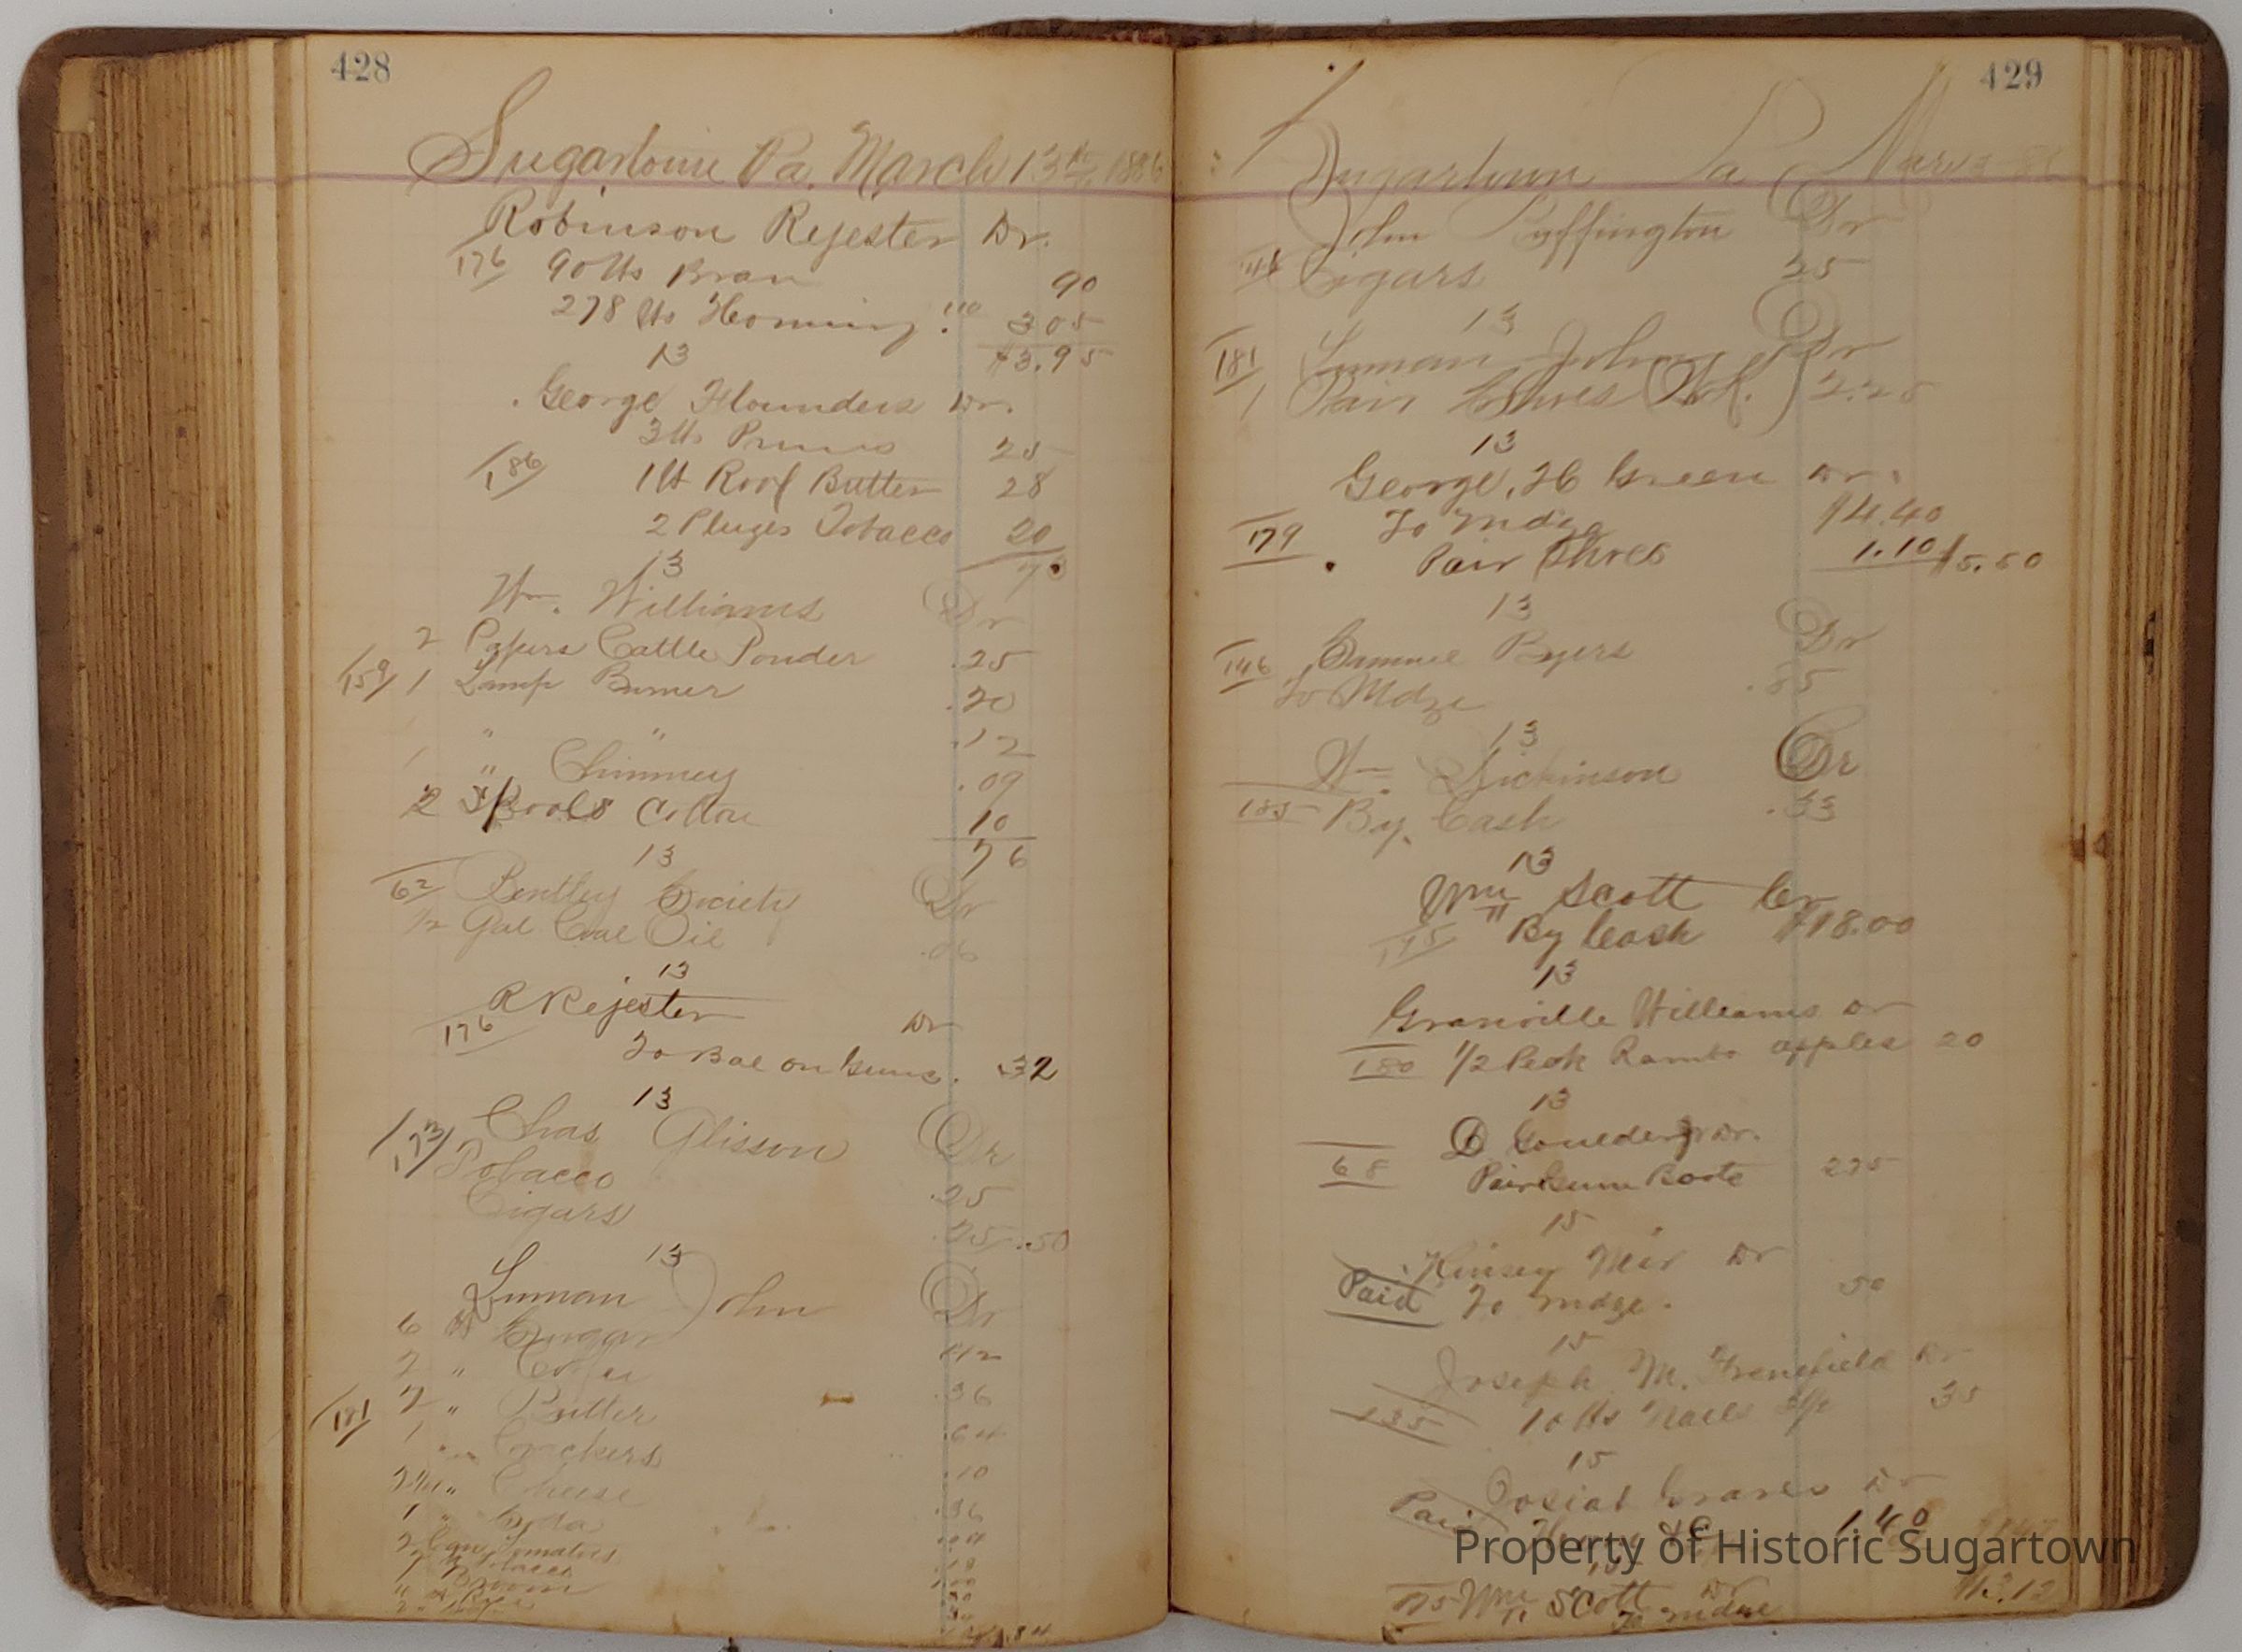 428
Sugartown Pa. March 13th 1886
Robinson Rejester Dr.
176 90 lbs Bran 90
278 lbs Hominy 1.10 3 05
$3.95
13
George Flounders Dr.
3 lbs Prunes 25
186 1 lb Roof Butter 28
2 Pluges Tobacco 20
73
13
Wm. Williams Dr
2 Papers Cattle Powder .25
159 1 Lamp Burner .20
" " .12
1 " Chimney .09
2 Spools Cotton 10
76
13
62 Bentley Society Dr
1/2 Gal Coal Oil .06
13
R Rejester Dr
176 To Bal on Gums. .32
13
173 Chas Glisson Dr
Tobacco .25
Cigars .25 .50
13
Luman John Dr
6 lb Sugar
2 " Coffee
181 2 " Butter .36
1 " Crackers .64
" Cheese .10
1 " Soda .36
2 Can Tomatoes
Broom
429
Sugartown Pa March
John Buffington Dr
Cigars 25
13
181 Luman John Dr
1 Pair Shoes 2.25
13
George, H Green Dr.
179 To Mdze $4.40
Pair Shoes 1.10 $5.50
13
146 Samuel Byers Dr
To Mdze .85
13
Wm. Dickinson Cr
185 By Cash .33
13
Wm Scott Cr
175 By Cash $18.00
13
Granville Williams Dr
180 1/2 Peck Rambo apples 20
13
D Goulder Dr.
68 Pair Gum Boots 225
15
Kinsey Dr
Paid To Mdze. 50
15
Joseph M. Dr
135 10 lbs Nails 35
15
Josiah Graves Dr
Paid 1.40
15
175 Wm Scott Dr
To Mdze
Property of Historic Sugartown